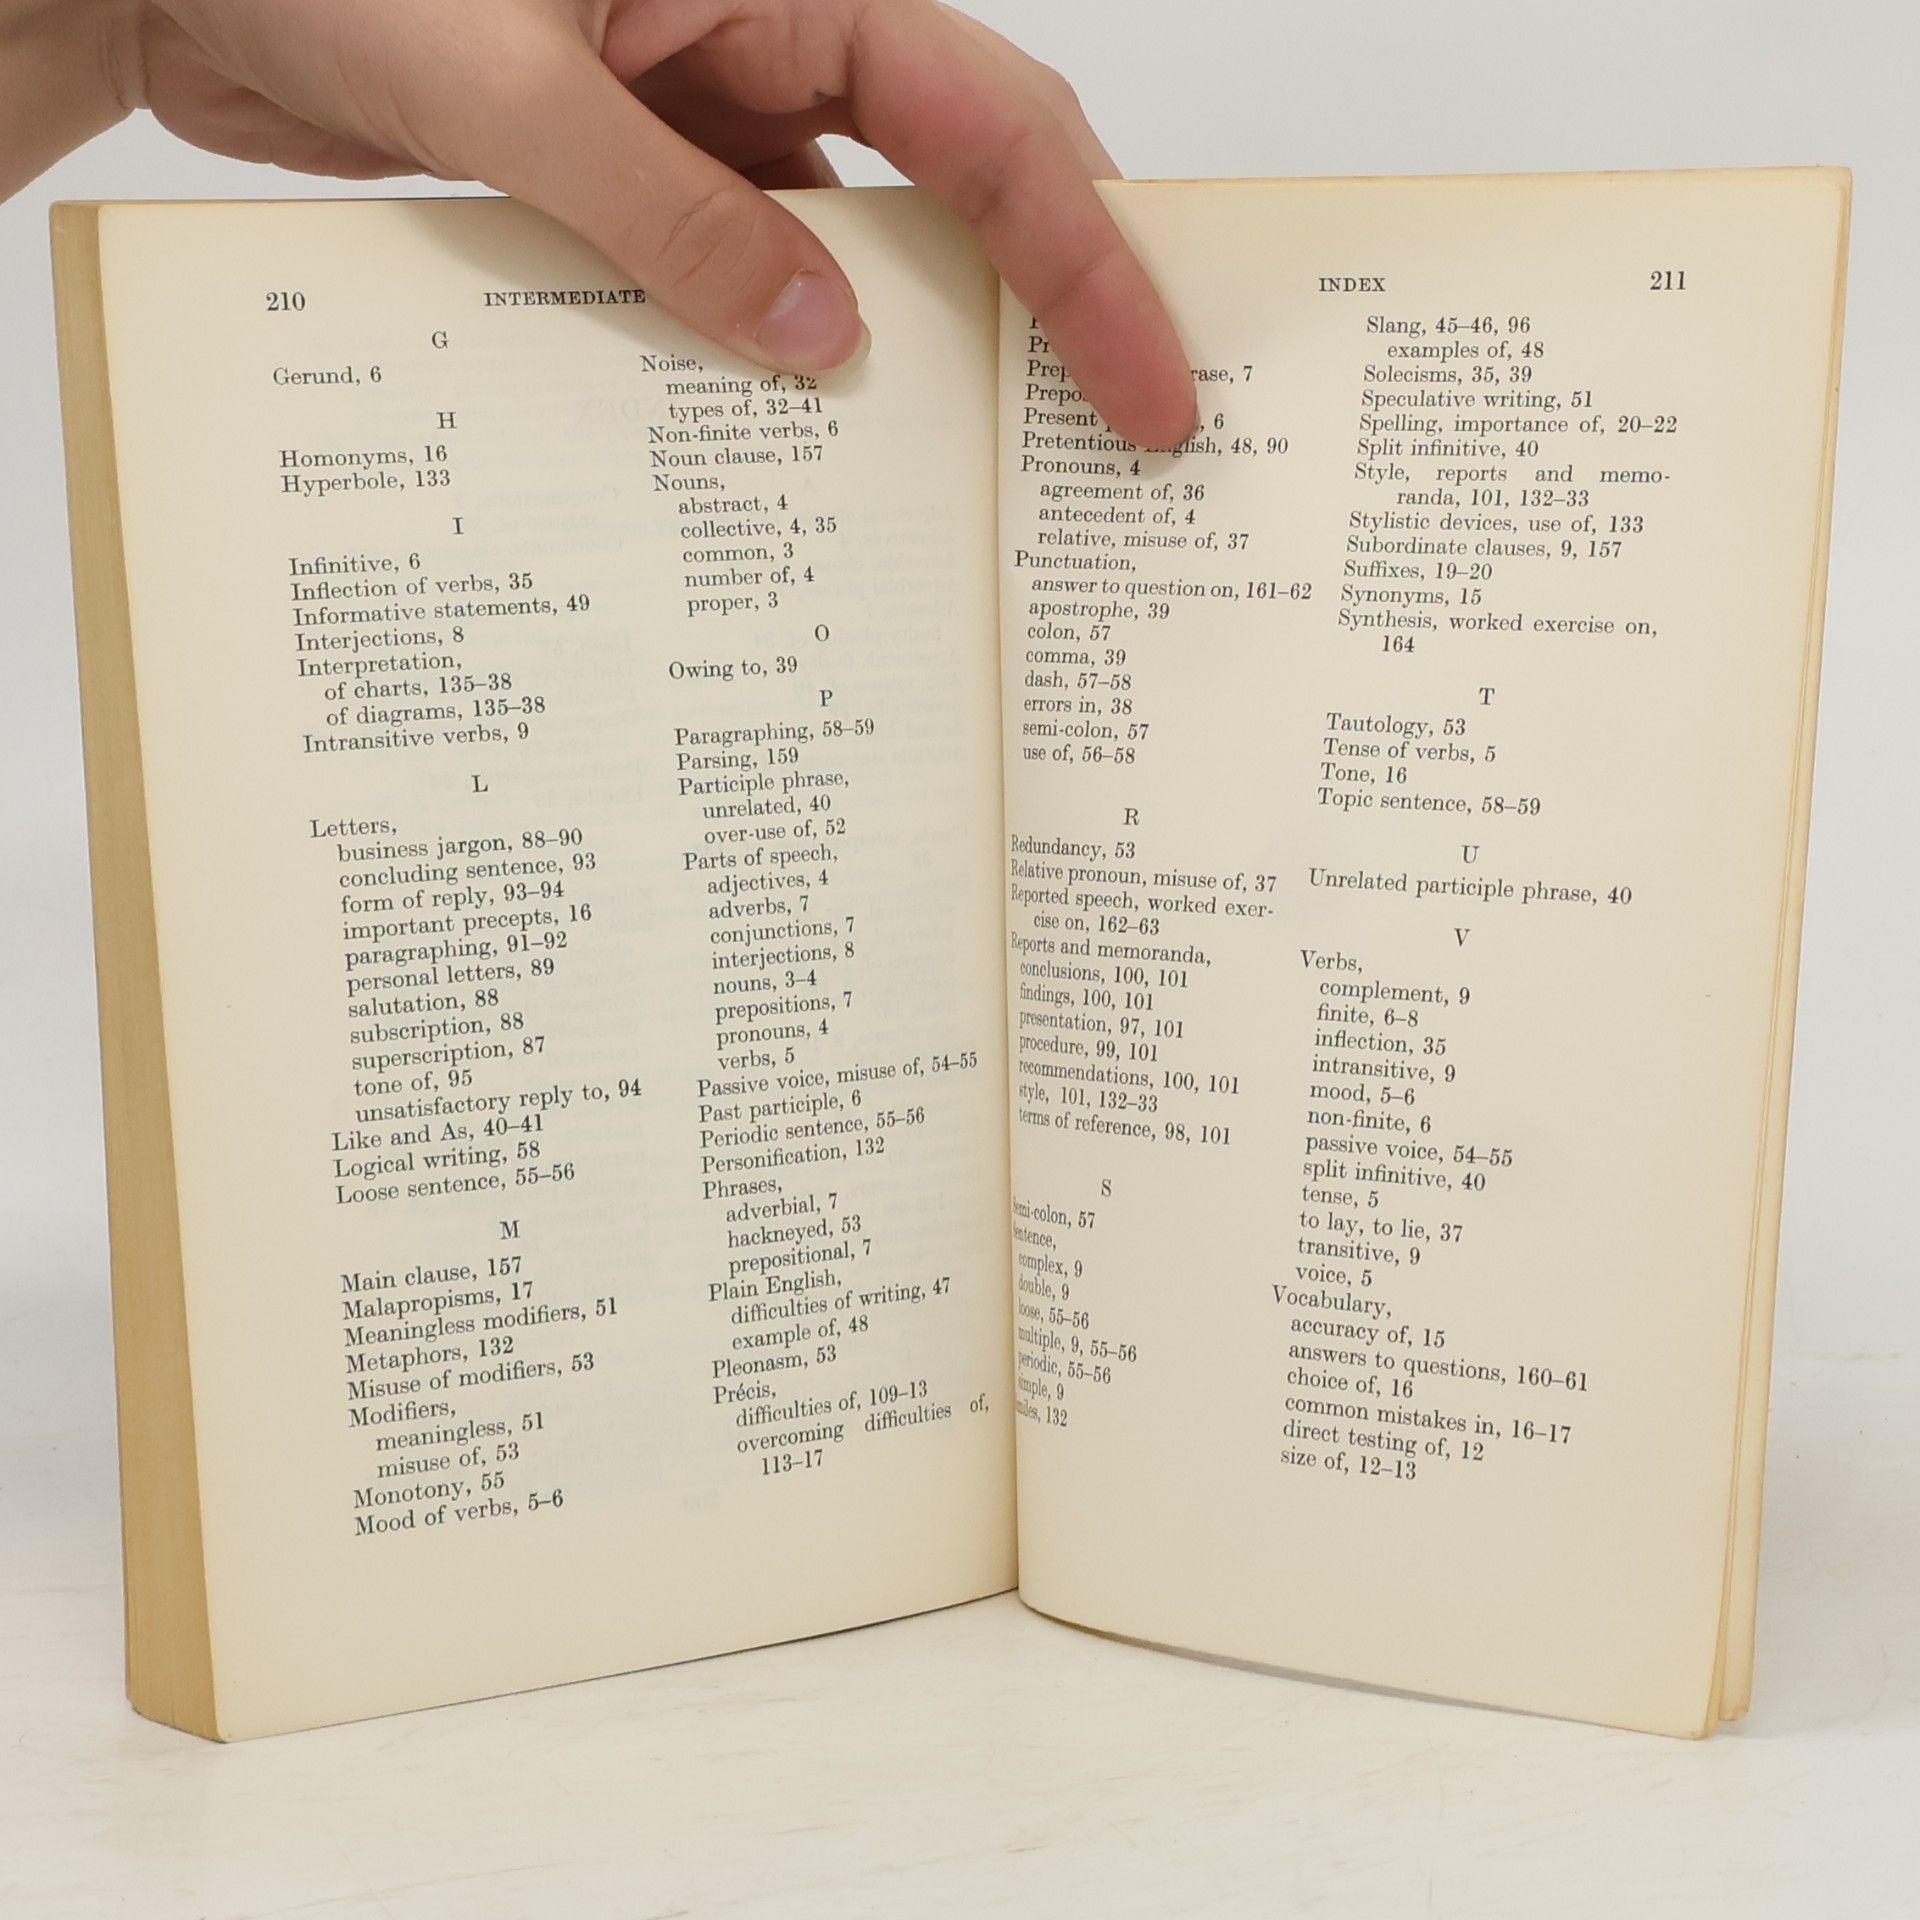 210
INTERMEDIATE
G
Gerund, 6
H
Homonyms, 16
Hyperbole, 133
I
Infinitive, 6
Inflection of verbs, 35
Informative statements, 49
Interjections, 8
Interpretation,
of charts, 135–38
of diagrams, 135–38
Intransitive verbs, 9
L
Letters,
business jargon, 88–90
concluding sentence, 93
form of reply, 93–94
important precepts, 16
paragraphing, 91–92
personal letters, 89
salutation, 88
subscription, 88
superscription, 87
tone of, 95
unsatisfactory reply to, 94
Like and As, 40–41
Logical writing, 58
Loose sentence, 55–56
M
Main clause, 157
Malapropisms, 17
Meaningless modifiers, 51
Metaphors, 132
Misuse of modifiers, 53
Modifiers,
meaningless, 51
misuse of, 53
Monotony, 55
Mood of verbs, 5–6
Noise,
meaning of, 32
types of, 32–41
Non-finite verbs, 6
Noun clause, 157
Nouns,
abstract, 4
collective, 4, 35
common, 3
number of, 4
proper, 3
O
Owing to, 39
P
Paragraphing, 58–59
Parsing, 159
Participle phrase,
unrelated, 40
over-use of, 52
Parts of speech,
adjectives, 4
adverbs, 7
conjunctions, 7
interjections, 8
nouns, 3–4
prepositions, 7
pronouns, 4
verbs, 5
Passive voice, misuse of, 54–55
Past participle, 6
Periodic sentence, 55–56
Personification, 132
Phrases,
adverbial, 7
hackneyed, 53
prepositional, 7
Plain English,
difficulties of writing, 47
example of, 48
Pleonasm, 53
Précis,
difficulties of, 109–13
overcoming difficulties of,
113–17
INDEX
211
7
Present , 6
Pretentious English, 48, 90
Pronouns, 4
agreement of, 36
antecedent of, 4
relative, misuse of, 37
Punctuation,
answer to question on, 161–62
apostrophe, 39
colon, 57
comma, 39
dash, 57–58
errors in, 38
semi-colon, 57
use of, 56–58
R
Redundancy, 53
Relative pronoun, misuse of, 37
Reported speech, worked exer-
cise on, 162–63
Reports and memoranda,
conclusions, 100, 101
findings, 100, 101
presentation, 97, 101
procedure, 99, 101
recommendations, 100, 101
style, 101, 132–33
terms of reference, 98, 101
S
Semi-colon, 57
Sentence,
complex, 9
double, 9
loose, 55–56
multiple, 9, 55–56
periodic, 55–56
simple, 9
Similes, 132
Slang, 45–46, 96
examples of, 48
Solecisms, 35, 39
Speculative writing, 51
Spelling, importance of, 20–22
Split infinitive, 40
Style, reports and memo-
randa, 101, 132–33
Stylistic devices, use of, 133
Subordinate clauses, 9, 157
Suffixes, 19–20
Synonyms, 15
Synthesis, worked exercise on,
164
T
Tautology, 53
Tense of verbs, 5
Tone, 16
Topic sentence, 58–59
U
Unrelated participle phrase, 40
V
Verbs,
complement, 9
finite, 6–8
inflection, 35
intransitive, 9
mood, 5–6
non-finite, 6
passive voice, 54–55
split infinitive, 40
tense, 5
to lay, to lie, 37
transitive, 9
voice, 5
Vocabulary,
accuracy of, 15
answers to questions, 160–61
choice of, 16
common mistakes in, 16–17
direct testing of, 12
size of, 12–13